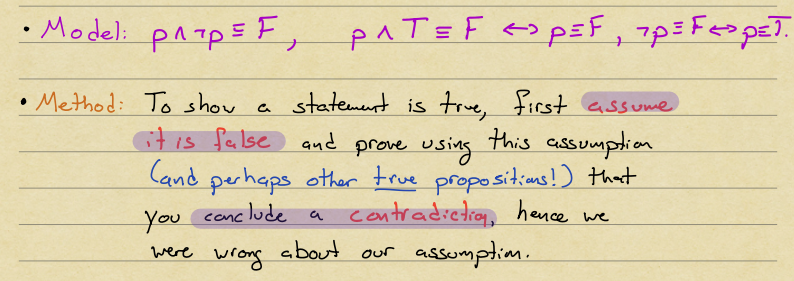 • Model: p∧¬p≡F, p∧T≡F ↔ p≡F, ¬p≡F↔p≡T.
• Method: To show a statement is true, first assume
it is false and prove using this assumption
(and perhaps other true propositions!) that
you conclude a contradiction, hence we
were wrong about our assumption.